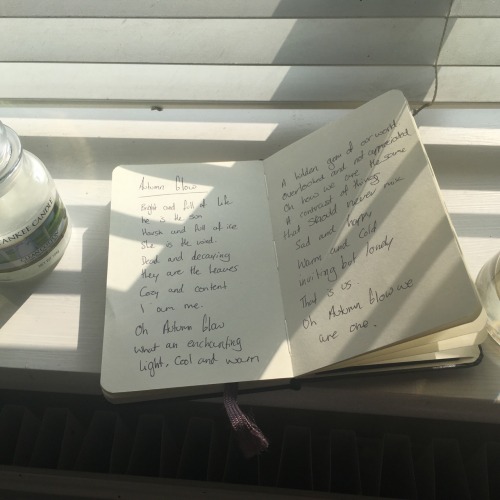 YANKEE CANDLE
Autumn Glow
Bright and full of life
he is the sun
Harsh and full of ice
She is the wind.
Dead and decaying
they are the leaves
Cosy and content
I am me.
Oh Autumn Glow
what an enchanting
light, Cool and warm
A hidden gem of our world
overlooked and not appreciated
Oh how we are the same
A contrast of things
that should never mix
Sad and happy
Warm and Cold
inviting but lonely
That is us
Oh Autumn Glow we
are one.